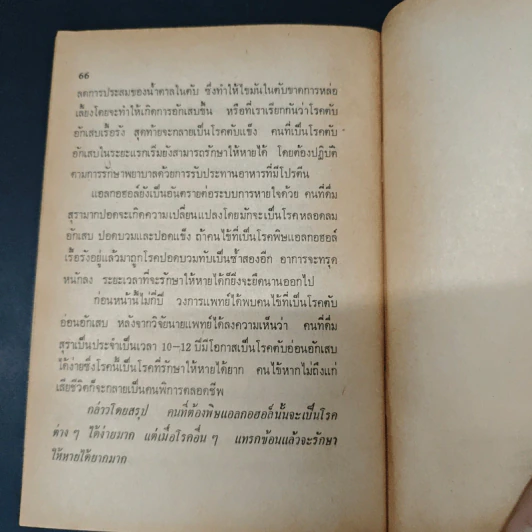 66
ลดการประสมของน้ำตาลในตับ ซึ่งทำให้ไขมันในตับขาดการหล่อ
เลี้ยงโดยจะทำให้เกิดการอักเสบขึ้น หรือที่เราเรียกกันว่าโรคตับ
อักเสบเรื้อรัง สุดท้ายจะกลายเป็นโรคตับแข็ง คนที่เป็นโรคตับ
อักเสบในระยะแรกเริ่มยังสามารถรักษาให้หายได้ โดยต้องปฏิบัติ
ตามการรักษาพยาบาลด้วยการรับประทานอาหารที่มีโปรตีน
แอลกอฮอล์ยังเป็นอันตรายต่อระบบการหายใจด้วย คนที่ดื่ม
สุรามากปอดจะเกิดความเปลี่ยนแปลงโดยมักจะเป็นโรคหลอดลม
อักเสบ ปอดบวมและปอดแข็ง ถ้าคนไข้ที่เป็นโรคพิษแอลกอฮอล์
เรื้อรังอยู่แล้วมาถูกโรคปอดบวมทับเป็นซ้ำสองอีก อาการจะทรุด
หนักลง ระยะเวลาที่จะรักษาให้หายได้ก็ยิ่งจะยืดนานออกไป
ก่อนหน้านี้ไม่กี่ปี วงการแพทย์ได้พบคนไข้ที่เป็นโรคตับ
อ่อนอักเสบ หลังจากวิจัยนายแพทย์ได้ลงความเห็นว่า คนที่ดื่ม
สุราเป็นประจำเป็นเวลา 10-12 ปีมีโอกาสเป็นโรคตับอ่อนอักเสบ
ได้ง่ายซึ่งโรคนี้เป็นโรคที่รักษาให้หายได้ยาก คนไข้หากไม่ถึงแก่
เสียชีวิตก็จะกลายเป็นคนพิการตลอดชีพ
กล่าวโดยสรุป คนที่ต้องพิษแอลกอฮอล์นั้นจะเป็นโรค
ต่าง ๆ ได้ง่ายมาก แต่เมื่อโรคอื่น ๆ แทรกซ้อนแล้วจะรักษา
ให้หายได้ยากมาก